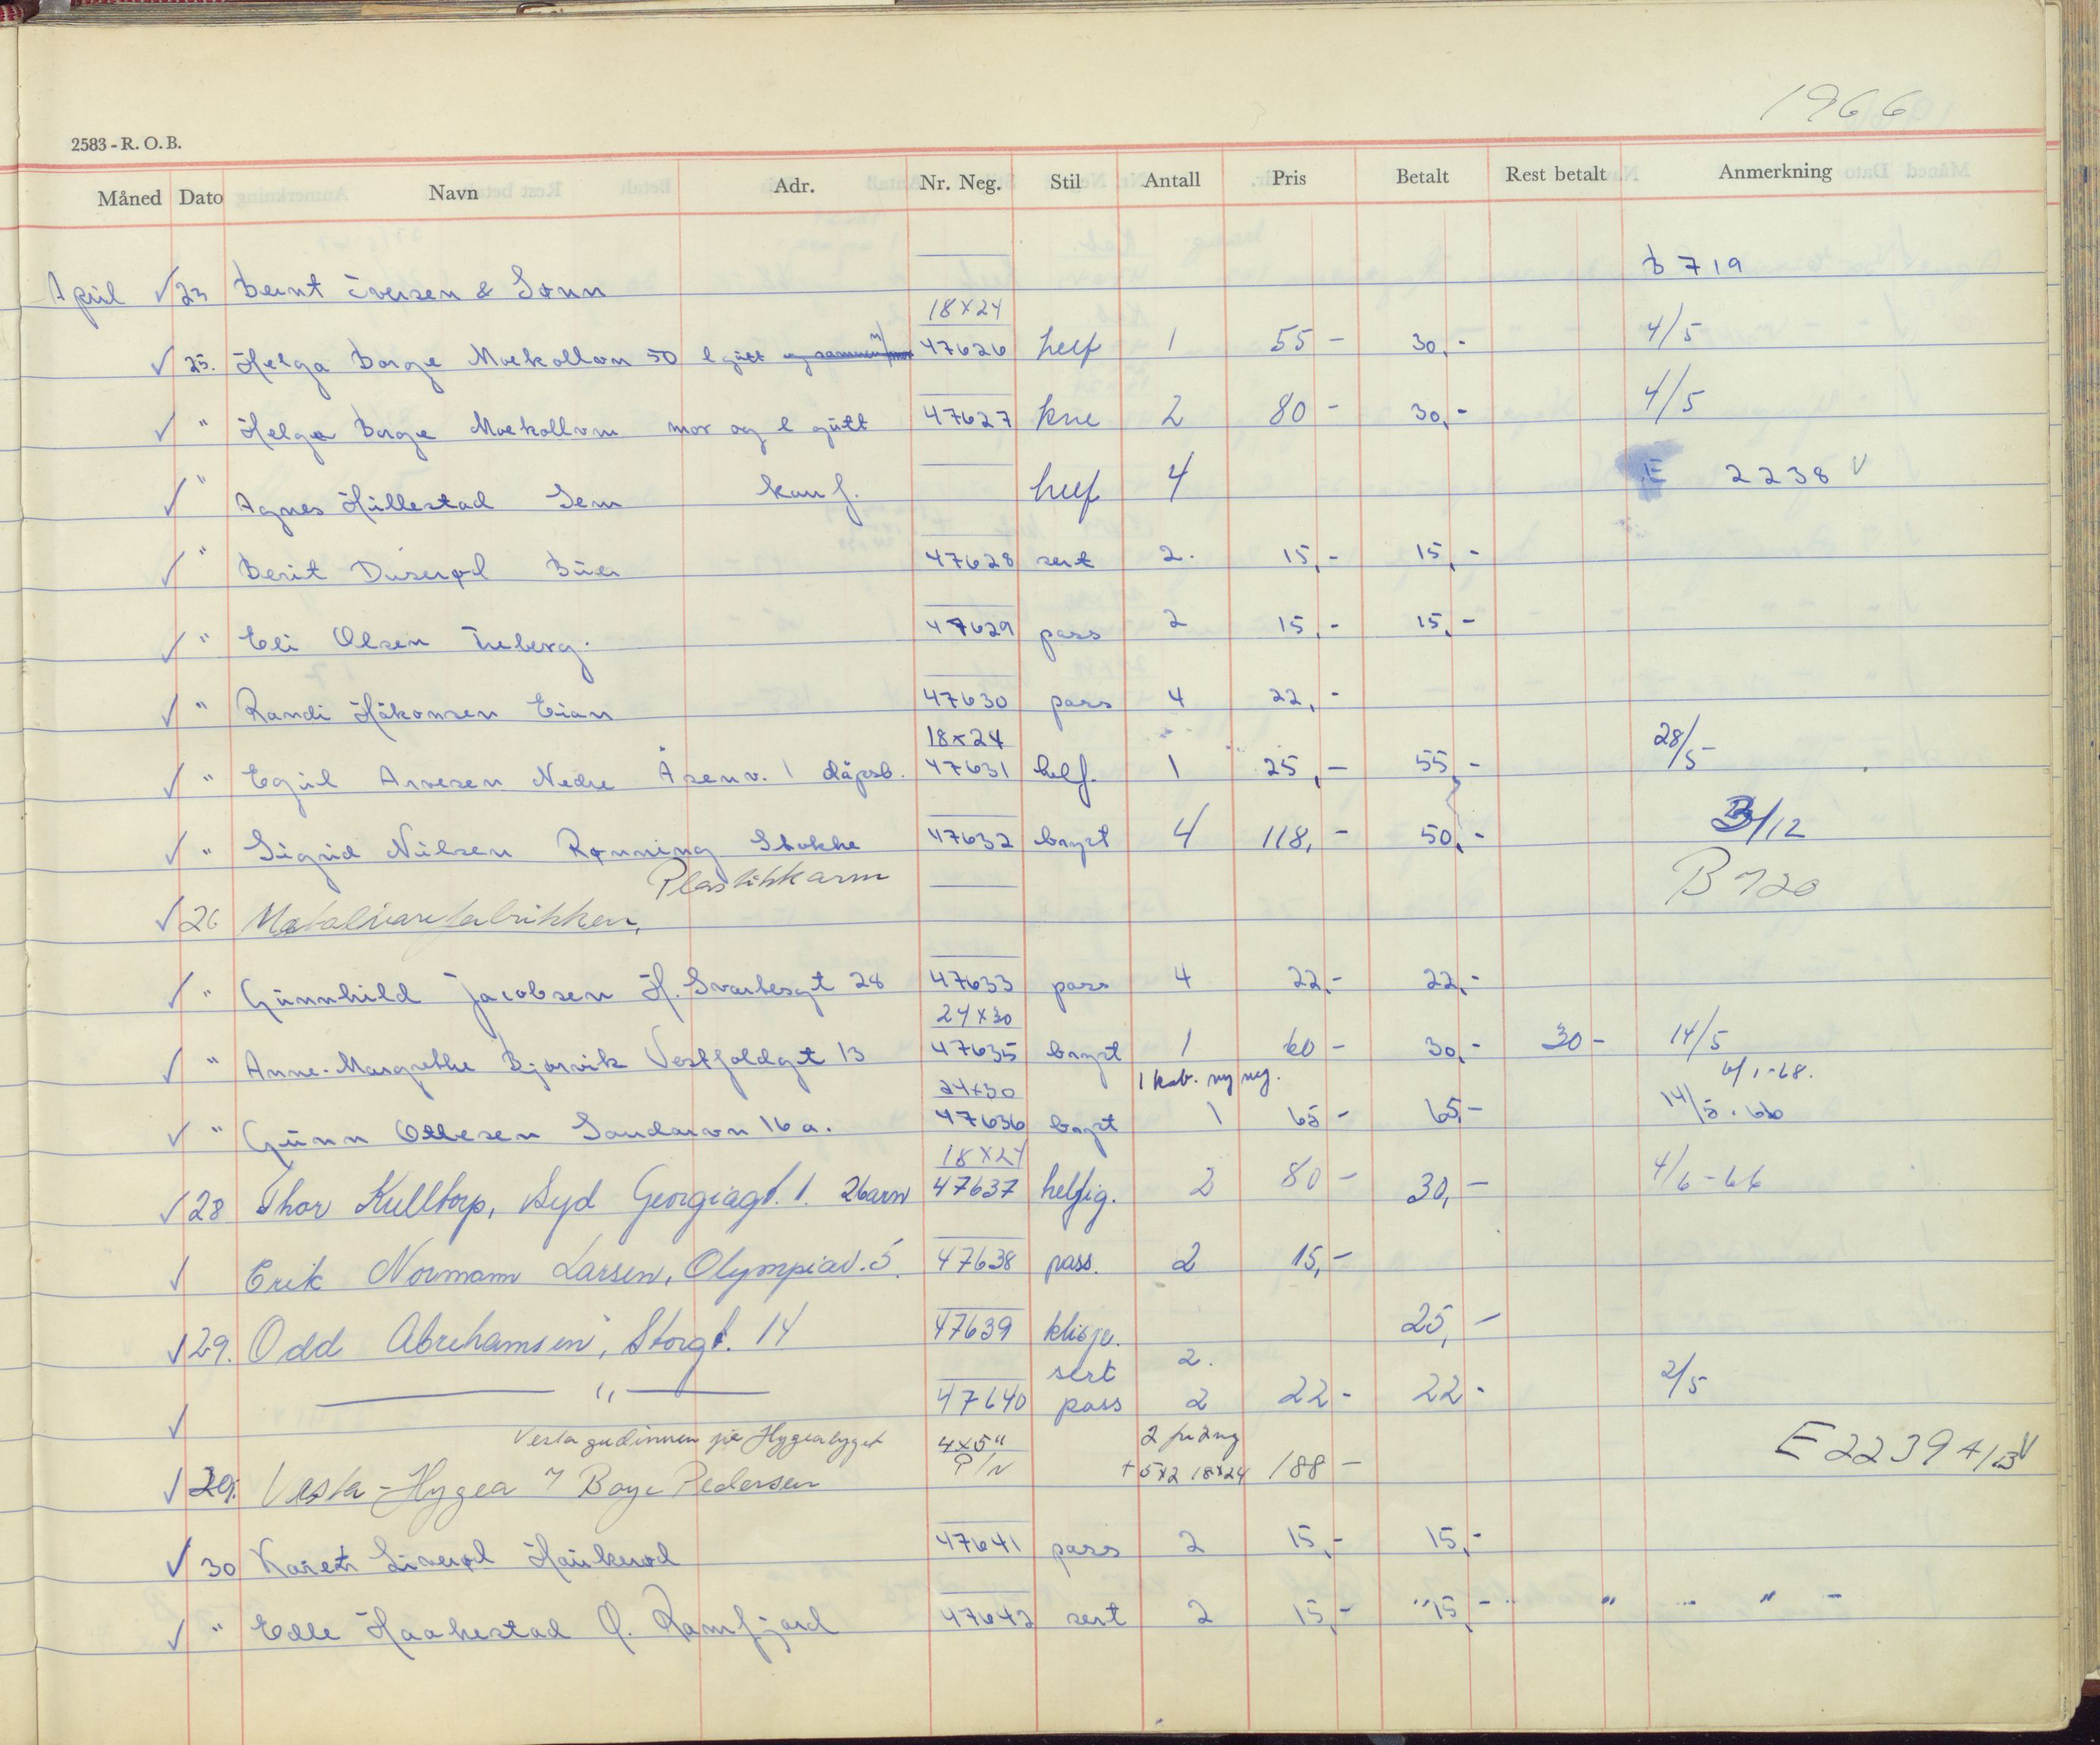 1966
2583 - R. O. B.
Måned Dato Navn Adr. Nr. Neg. Stil Antall Pris Betalt Rest betalt Anmerkning
April √ 23 Bernt Iversen & Sønn B 719
18x24
√ 25. Helga Borge Moekollvn 50 l gutt og sammen m/mor 47626 helf 1 55 - 30,- 4/5
√ " Helga Borge Moekollvn mor og l gutt 47627 kne 2 80 - 30,- 4/5
√ " Agnes Hillestad Sem konf. helf 4 E 2238 √
√ " Berit Duserød Buer 47628 sert 2. 15,- 15,-
√ " Eli Olsen Unneberg. 47629 pass 2 15,- 15,-
√ " Randi Håkonsen Eian 47630 pass 4 22,-
18x24
√ " Egil Arvesen Nedre Åsenv. 1 dåpsb. 47631 helf. 1 25,- 55,- 28/5
√ " Sigrid Nilsen Rønning Stokke 47632 bryst 4 118,- 50,- 3/12
Plastikkarm
√ 26 Metalvarefabrikken, B 720
√ " Gunnhild Jacobsen H. Svartesgt 28 47633 pass 4 22,- 22,-
24x30
√ " Anne-Margrethe Bjørvik Vestfoldgt 13 47635 bryst 1 60 - 30,- 30 - 14/5
24x30 1 kab. ny neg. 6/1-68.
√ " Gunn Ottesen Sandarvn 16 a. 47636 bryst 1 65 - 65,- 14/5.66
18x24
√ 28 Thor Kulltorp, Syd Georgiagt. 1. 2barn 47637 helfig. 2 80 - 30,- 4/6-66
√ Erik Normann Larsen, Olympiav. 5. 47638 pass. 2 15,-
√ 29. Odd Abrahamsen, Storgt. 14 47639 klisje. 25,-
sert 2.
√ — " — 47640 pass 2 22 - 22 - 2/5
Vesta gudinnen på Hygeabygget 4x5" 2 på ang
√ 29. Vesta-Hygea v/ Boye Pedersen P/N + 5x2 18x24 188 - E 2239 4/B √
√ 30 Karen Liverød Haukerød 47641 pass 2 15,- 15,-
√ " Edle Haakestad Ø. Ramfjord 47642 sert 2 15,- 15,- " "